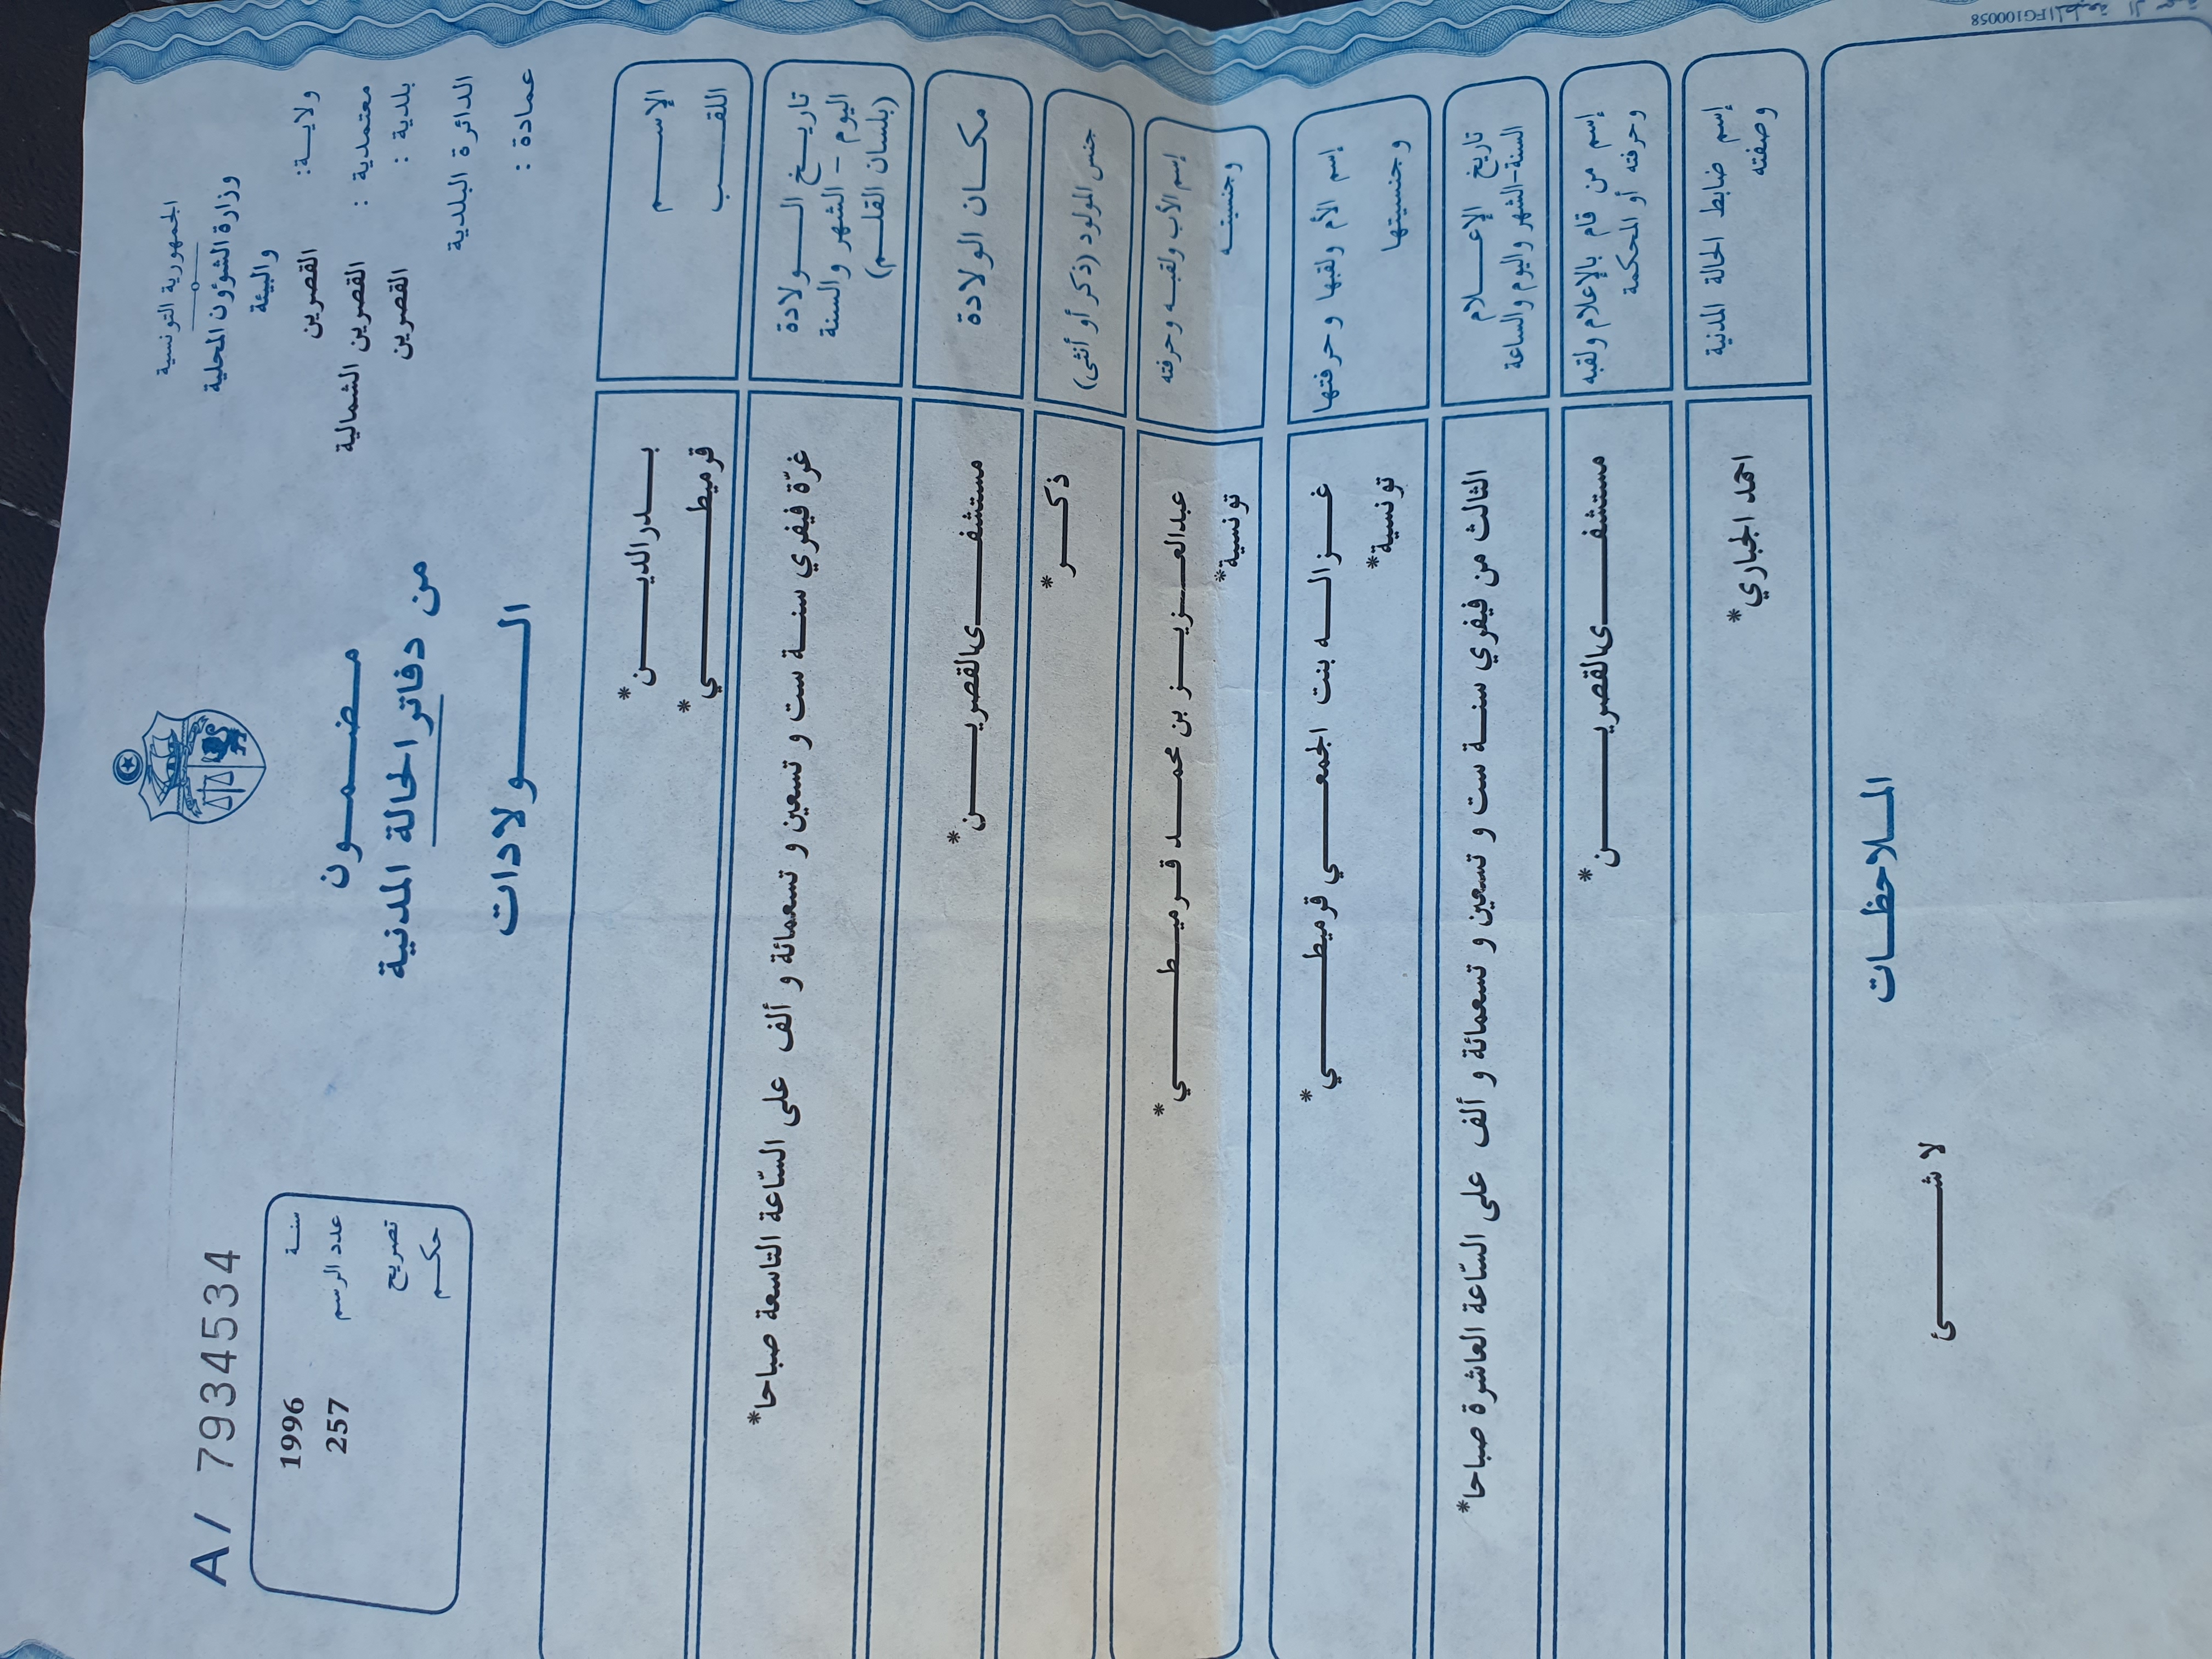 الجمهورية التونسية
وزارة الشؤون المحلية
والبيئة
ولاية: القصرين
معتمدية : القصرين الشمالية
بلدية : القصرين
الدائرة البلدية
عمادة :
مضمون
من دفاتر الحالة المدنية
الولادات
A/ 7934534
سنة 1996
عدد الرسم 257
تصريح
حكم
الإسم بدرالدين*
اللقب قرميطي*
تاريخ الولادة
اليوم - الشهر والسنة
(بلسان القلم)
غرّة فيفري سنة ست و تسعين و تسعمائة و ألف على السّاعة التاسعة صباحا*
مكان الولادة مستشفى القصرين*
جنس المولود (ذكر أو أنثى) ذكر*
إسم الأب ولقبه وحرفته عبدالعزيز بن محمد قرميطي*
وجنسيته تونسية*
إسم الأم ولقبها وحرفتها غزاله بنت الجمعي قرميطي*
وجنسيتها تونسية*
تاريخ الإعلام
السنة-الشهر واليوم والساعة
الثالث من فيفري سنة ست و تسعين و تسعمائة و ألف على السّاعة العاشرة صباحا*
إسم من قام بالإعلام ولقبه
وحرفته أو المحكمة
مستشفى القصرين*
إسم ضابط الحالة المدنية
وصفته
احمد الجباري*
الملاحظات
لا شئ
FG100058